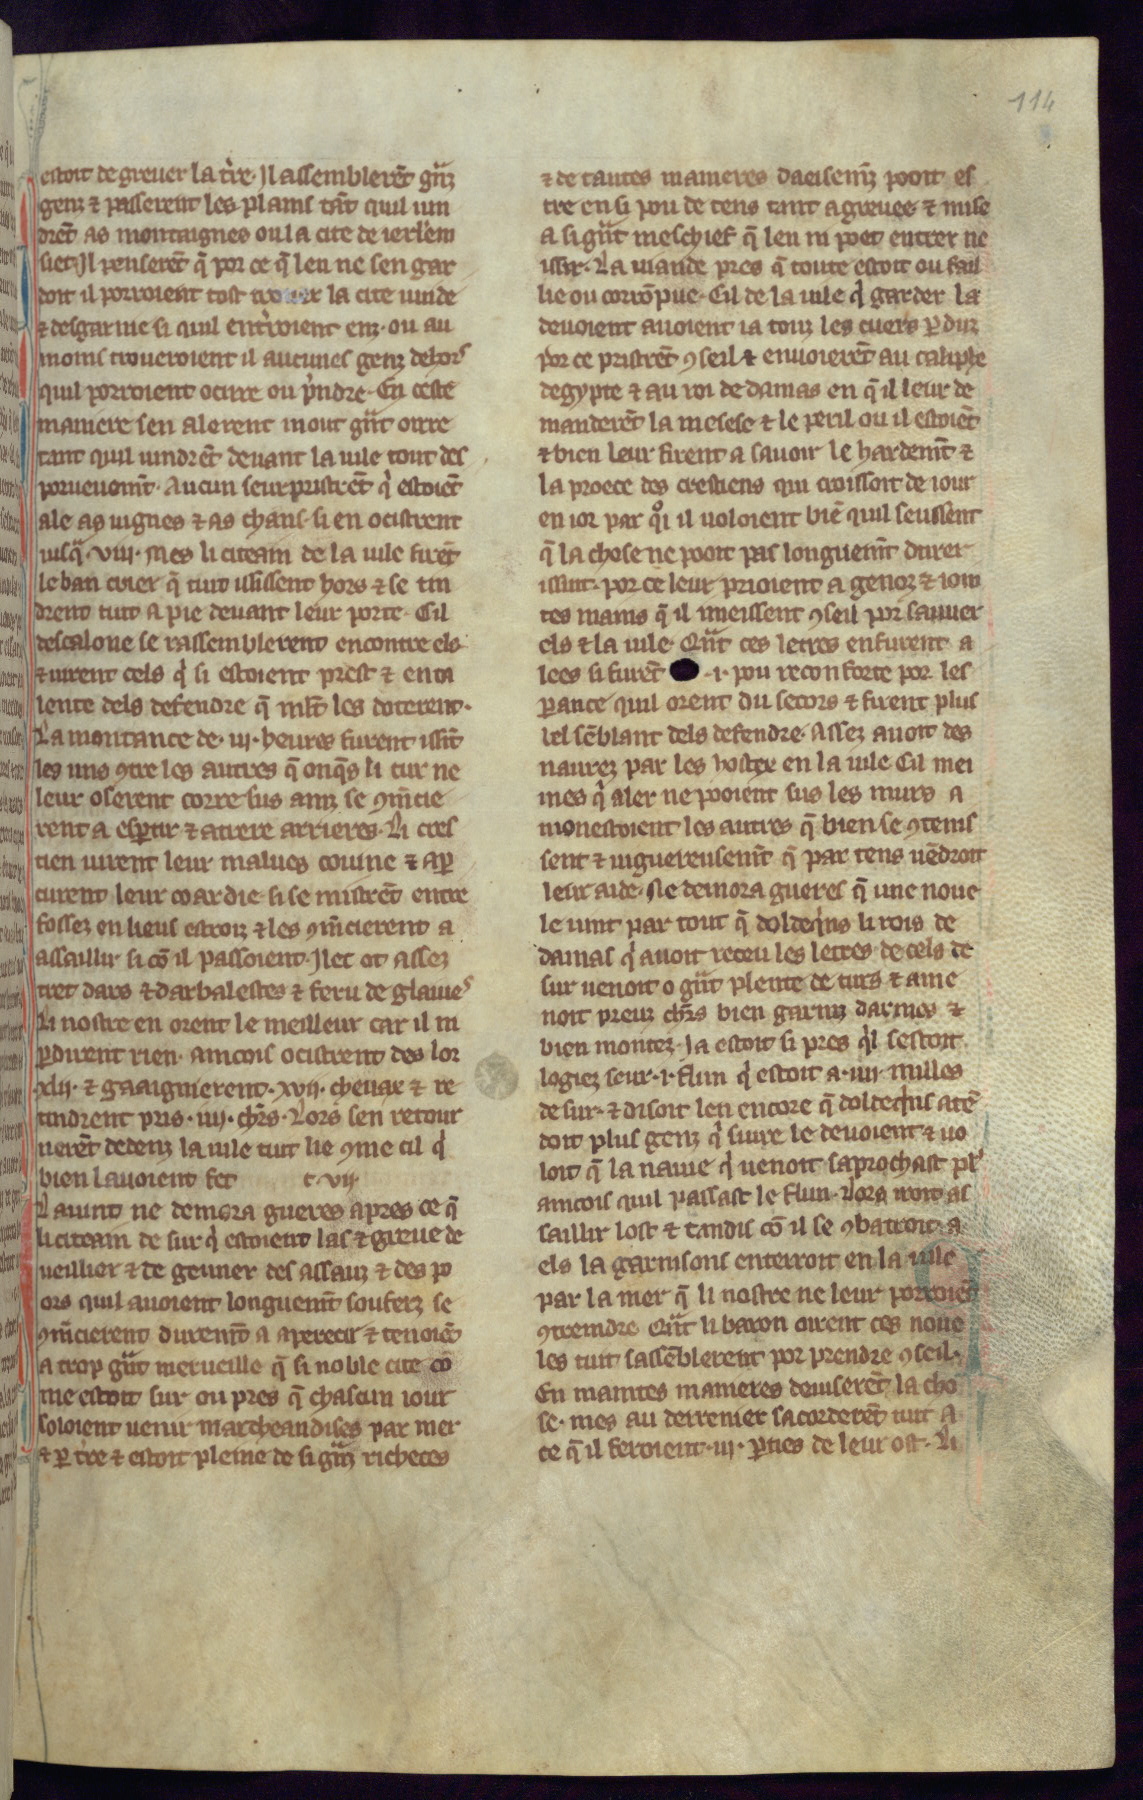 114
estoit de greuer la t̃re. Il assemblerẽt gñz
genz ⁊ passerent les plains tãt quil uin
drẽt as montaignes ou la cite de ierl̃em
siet. Il penserẽt q̃ por ce q̃ len ne sen gar
doit il porroient tost trouer la cite uuide
⁊ desgarnie si quil entr̃oient enz. ou au
moins troueroient il aucunes genz dehors
quil porroient ocirre ou p̃ndre. En ceste
maniere sen alerent mout gñt oirre
tant quil uindrẽt deuant la uile tout des
porueuem̃t. Aucun seurpristrẽt q̃ estoiẽt
ale as uignes ⁊ as chans. si en ocistrent
iusq̃. viii. Mes li citeain de la uile firẽt
le ban crier q̃ tuit ississent hors ⁊ se tin
drent tuit a pie deuant leur porte. Cil
descalone se rassemblerent encontre els
⁊ uirent cels q̃ si estoient prest ⁊ enta
lente dels defendre q̃ ml̃t les doterent.
La montance de. iii. heures furent issĩt
les uns ꝯtre les autres q̃ onq̃s li tur ne
leur oserent corre sus ainz se ꝯm̃cie
rent a esp̱tir ⁊ atrere arrieres. Li cres
tien uirent leur malues couine ⁊ ap̱
curent leur coardie. si se mistrẽt entre
fossez en lieus estroiz ⁊ les ꝯm̃cierent a
assaillir si cõ il passoient. Ilec ot assez
tret dars ⁊ darbalestes ⁊ feru de glaiues
Li nostre en orent le meilleur car il ni
ꝑdirent rien. aincois ocistrent des lor
xlii. ⁊ gaaignierent. xvii. cheuax ⁊ re
tindrent pris. iiii. chr̃s. Lors sen retour
nerẽt dedenz la uile tuit lie ꝯme cil q̃
bien lauoient fet c. vii.
Lauint ne demora gueres apres ce q̃
li citeain de sur q̃ estoient las ⁊ greue de
ueillier ⁊ de geuner des assauz ⁊ des po
ors quil auoient longuem̃t souferz se
ꝯm̃cierent durem̃t a aperecir ⁊ tenoiẽt
a trop gñt merueille q̃ si noble cite cõ
me estoit sur ou pres q̃ chascun iour
soloient uenir marcheandises par mer
⁊ ꝑ t̃re ⁊ estoit pleine de si gñz richeces
⁊ de tantes manieres daeisem̃z pooit es
tre en si pou de tens tant agreuee ⁊ mise
a si gñt meschief q̃ len ni poet entrer ne
issir. La uiande pres q̃ toute estoit ou fail
lie ou corrõpue. Cil de la uile q̃ garder la
deuoient auoient ia touz les cuers ꝑduz
por ce pristrẽt ꝯseil ⁊ enuoierẽt au caliphe
degypte ⁊ au roi de damas en q̃ il leur de
manderẽt la mesese ⁊ le peril ou il estoiẽt
⁊ bien leur firent a sauoir le hardem̃t ⁊
la proece des crestiens qui croissoit de iour
en ior par q̊i il uoloient biẽ quil seussent
q̃ la chose ne pooit pas longuem̃t durer
issint. por ce leur prioient a genoz ⁊ ioin
tes mains q̃ il imeissent ꝯseil por sauuer
els ⁊ la uile. Qũt ces letres en furent a
lees si furẽt .i. pou reconforte por les
ꝑance quil orent du secors ⁊ firent plus
lel sẽblant dels defendre. Assez auoit des
naurez par les hostex en la uile Cil mei
mes q̃ aler ne pooient sus les murs a
monestoient les autres q̃ bien se ꝯtenis
sent ⁊ uiguereusem̃t q̃ par tens uẽdroit
leur aide. Ne demora gueres q̃ une noue
le uint par tout q̃ doldeq̃ns li rois de
damas q̃ auoit receu les letres de cels de
sur uenoit o gñt plente de turs ⁊ ame
noit preuz chr̃s bien garniz darmes ⁊
bien montez. Ia estoit si pres q̃l sestoit
logiez seur. i. flun q̃ estoit a. iiii. milles
de sur. ⁊ disoit len encore q̃ doldeq̃ns atẽ
doit plus genz q̃ siure le deuoient ⁊ uo
loit q̃ la nauie q̃ uenoit saprochast pl᷒
aincois quil passast le flun. Lors uoit as
saillir lost ⁊ tandis cõ il se ꝯbatroit a
els la garnisons enterroit en la uile
par la mer q̃ li nostre ne leur porroiẽt
ꝯtreindre. Qũt li baron oirent ces noue
les tuit sassẽblerent por prendre ꝯseil.
En maintes manieres deuiserẽt la cho
se. mes au derrenier sacorderẽt tuit a
ce q̃ il feroient. iii. ꝑties de leur ost. Li